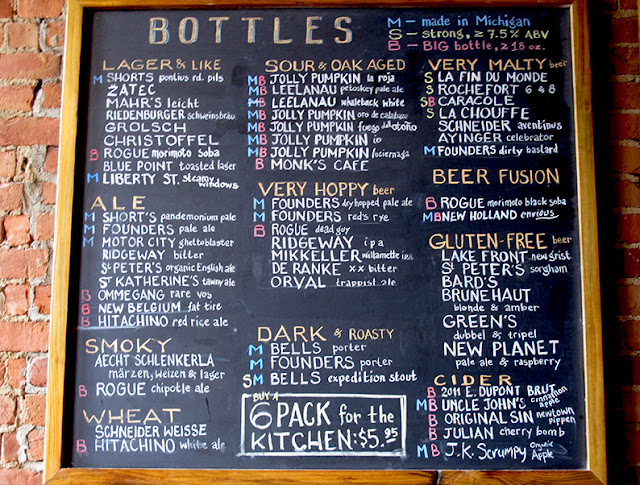 BOTTLES
M - made in Michigan
S - strong, ≥ 7.5% ABV
B - BIG bottle, ≥ 18 oz.
LAGER & LIKE
M SHORTS pontius rd. pils
ZATEC
MAHR'S leicht
RIEDENBURGER schweinsbräu
GROLSCH
CHRISTOFFEL
B ROGUE morimoto soba
BLUE POINT toasted lager
M LIBERTY ST. steamy windows
ALE
M SHORT'S pandemonium pale
M FOUNDERS pale ale
M MOTOR CITY ghettoblaster
RIDGEWAY bitter
St PETER'S organic English ale
St KATHERINE'S tawny ale
B OMMEGANG rare vos
B NEW BELGIUM fat tire
B HITACHINO red rice ale
SMOKY
AECHT SCHLENKERLA
märzen, weizen & lager
B ROGUE chipotle ale
WHEAT
SCHNEIDER WEISSE
B HITACHINO white ale
SOUR & OAK AGED
MB JOLLY PUMPKIN la roja
MB LEELANAU petoskey pale ale
MB LEELANAU whaleback white
MB JOLLY PUMPKIN oro de calabaza
MB JOLLY PUMPKIN fuego del otoño
MB JOLLY PUMPKIN io
MB JOLLY PUMPKIN luciernaga
B MONK'S CAFE
VERY HOPPY beer
M FOUNDERS dry hopped pale ale
M FOUNDERS red's rye
B ROGUE dead guy
RIDGEWAY ipa
MIKKELLER willamette ipa
DE RANKE xx bitter
ORVAL trappist ale
DARK & ROASTY
M BELLS porter
M FOUNDERS porter
SM BELLS expedition stout
BUY A
6 PACK for the
KITCHEN: $5.95
VERY MALTY beer
S LA FIN DU MONDE
S ROCHEFORT 6 & 8
SB CARACOLE
S LA CHOUFFE
SCHNEIDER aventinus
AYINGER celebrator
M FOUNDERS dirty bastard
BEER FUSION
B ROGUE morimoto black soba
MB NEW HOLLAND envious
GLUTEN-FREE beer
LAKE FRONT new grist
St PETER'S sorgham
BARD'S
BRUNEHAUT
blonde & amber
GREEN'S
dubbel & tripel
NEW PLANET
pale ale & raspberry
CIDER
B 2011 E. DUPONT BRUT
MB UNCLE JOHN'S cinnamon apple
B ORIGINAL SIN newtown pippen
B JULIAN cherry bomb
MB J.K. Scrumpy Organic Apple